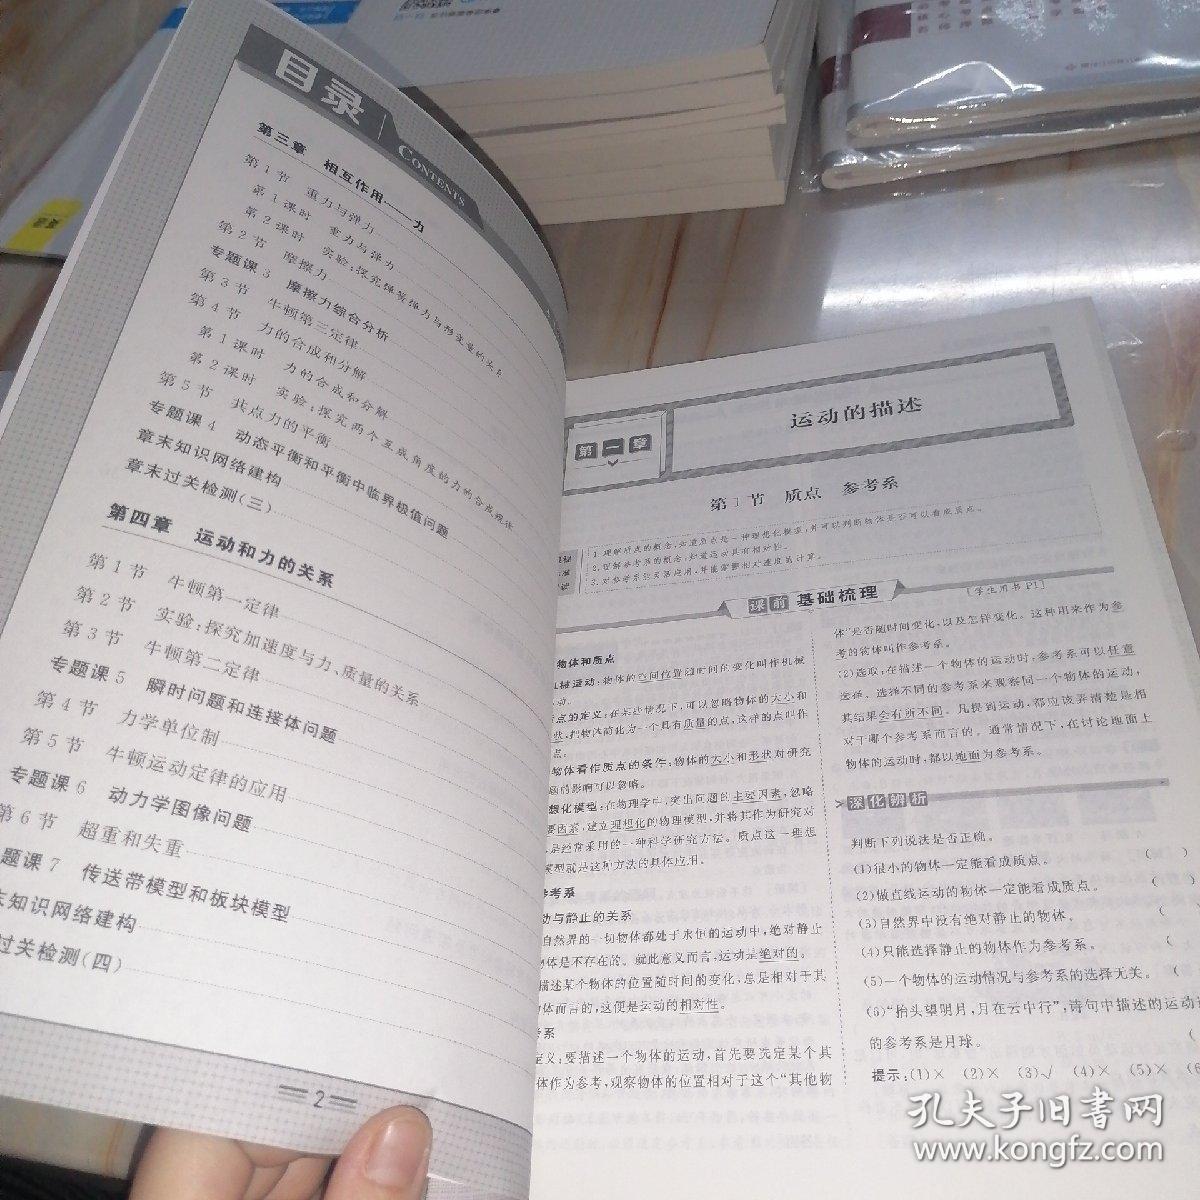 目录
CONTENTS
第三章 相互作用——力
第1节 重力与弹力
第1课时 重力与弹力
第2课时 实验:探究弹簧弹力与形变量的关系
第2节 摩擦力
专题课3 摩擦力综合分析
第3节 牛顿第三定律
第4节 力的合成和分解
第1课时 力的合成和分解
第2课时 实验:探究两个互成角度的力的合成规律
第5节 共点力的平衡
专题课4 动态平衡和平衡中临界极值问题
章末知识网络建构
章末过关检测(三)
第四章 运动和力的关系
第1节 牛顿第一定律
第2节 实验:探究加速度与力、质量的关系
第3节 牛顿第二定律
专题课5 瞬时问题和连接体问题
第4节 力学单位制
第5节 牛顿运动定律的应用
专题课6 动力学图像问题
第6节 超重和失重
题课7 传送带模型和板块模型
知识网络建构
过关检测(四)
2
第一章
运动的描述
第1节 质点 参考系
1.理解质点的概念,知道质点是一种理想化模型,并可以判断物体是否可以看成质点。
2.理解参考系的概念,知道运动具有相对性。
3.对参考系的灵活应用,并能掌握相对速度的计算。
课前 基础梳理
[学生用书P1]
物体和质点
械运动:物体的空间位置随时间的变化叫作机械
动。
点的定义:在某些情况下,可以忽略物体的大小和
状,把物体简化为一个具有质量的点,这样的点叫作
点。
物体看作质点的条件:物体的大小和形状对研究
题的影响可以忽略。
想化模型:在物理学中,突出问题的主要因素,忽略
要因素,建立理想化的物理模型,并将其作为研究对
是经常采用的一种科学研究方法。质点这一理想
模型就是这种方法的具体应用。
参考系
动与静止的关系
自然界的一切物体都处于永恒的运动中,绝对静止
物体是不存在的。就此意义而言,运动是绝对的。
描述某个物体的位置随时间的变化,总是相对于其
物体而言的,这便是运动的相对性。
考系
定义:要描述一个物体的运动,首先要选定某个其
体作为参考,观察物体的位置相对于这个“其他物
体”是否随时间变化,以及怎样变化。这种用来作为参
考的物体叫作参考系。
(2)选取:在描述一个物体的运动时,参考系可以任意
选择。选择不同的参考系来观察同一个物体的运动,
其结果会有所不同。凡提到运动,都应该弄清楚是相
对于哪个参考系而言的。通常情况下,在讨论地面上
物体的运动时,都以地面为参考系。
深化辨析
判断下列说法是否正确。
(1)很小的物体一定能看成质点。 ( )
(2)做直线运动的物体一定能看成质点。 (
(3)自然界中没有绝对静止的物体。 (
(4)只能选择静止的物体作为参考系。 (
(5)一个物体的运动情况与参考系的选择无关。 (
(6)“抬头望明月,月在云中行”,诗句中描述的运动
的参考系是月球。 (
提示:(1)× (2)× (3)√ (4)× (5)× (6
孔夫子旧书网
www.kongfz.com